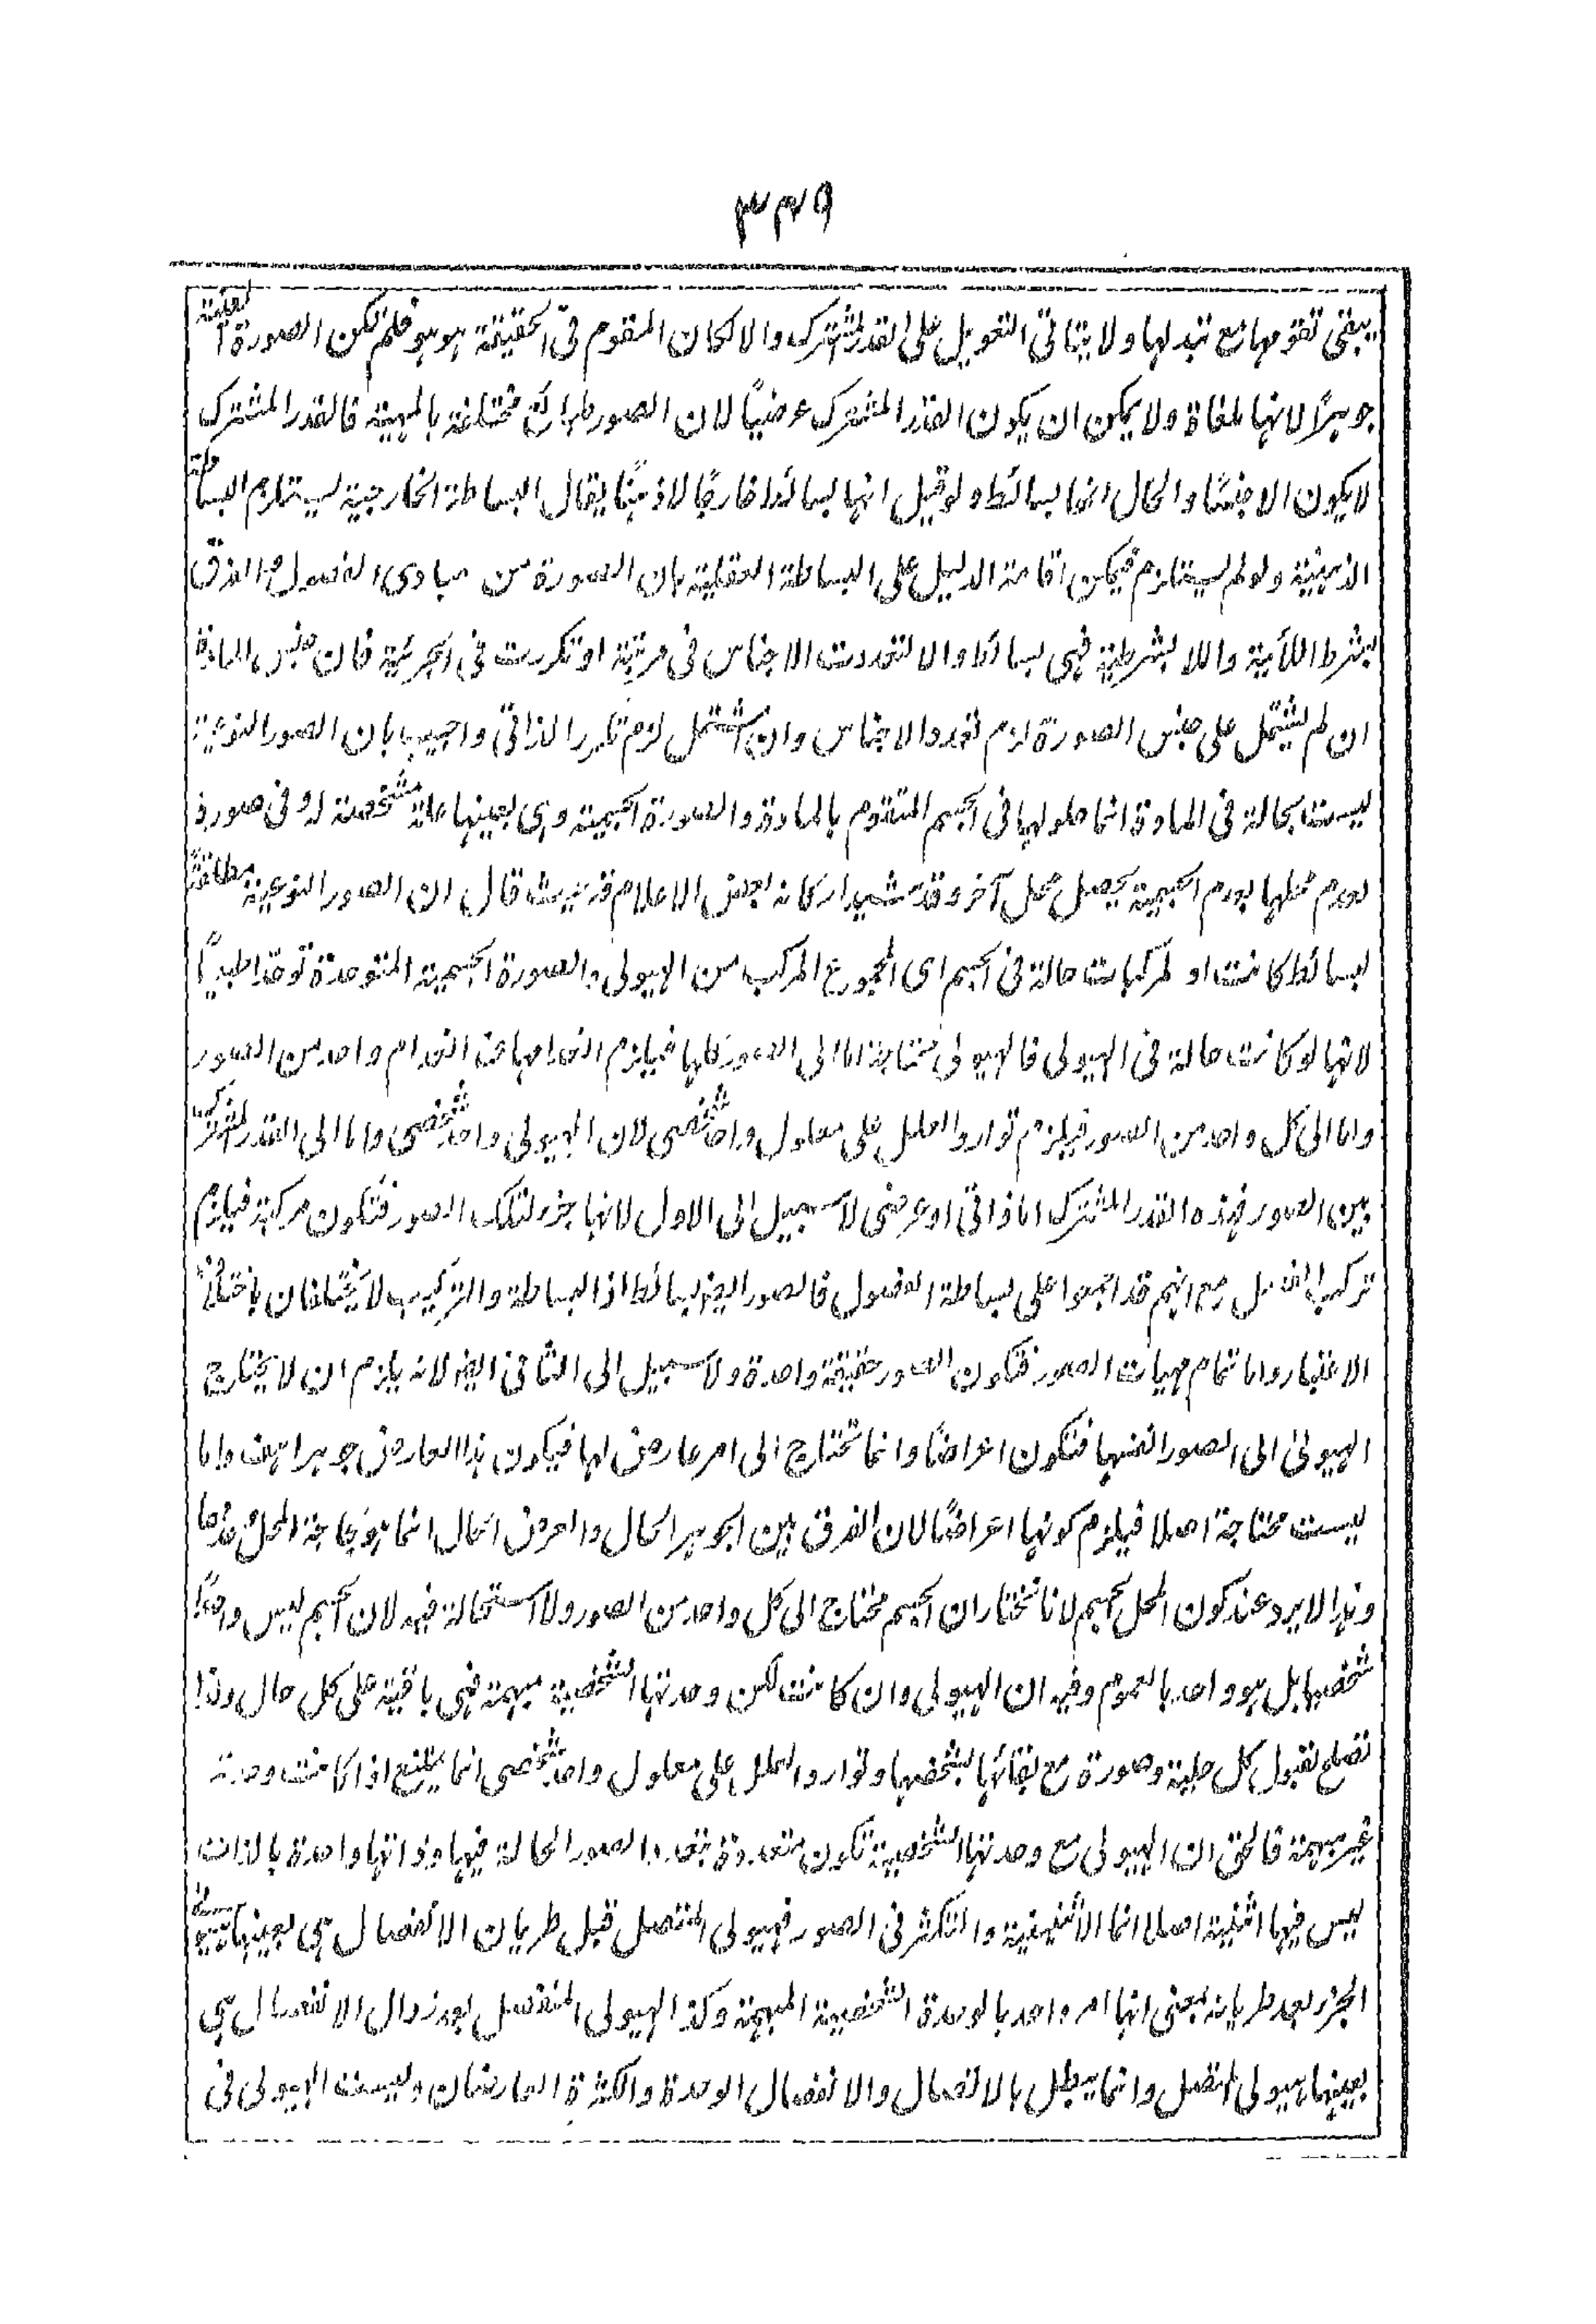 ٣٤٩
يبقى تقومها مع تبدلها ولا يتاتى التعويل على القدر المشترك والا لكان المقوم فى الحقيقة هو هو فلم تكن الصورة الجسمية
جوهرًا لانها ملغاة ولا يمكن ان يكون القدر المشترك عرضيًا لان الصور مختلفة بالمهية فالقدر المشترك
لا يكون الا جنسًا والحال انها بسائط ولو قيل انها بسائط خارجًا لا ذهنًا يقال البساطة الخارجية يستلزم البساطة
الذهنية ولو لم يستلزم فيمكن اقامة الدليل على البساطة العقلية بان الصورة من مبادى الفصول والفرق
بشرط اللائية واللا بشرطية فهى بسائط والا لتعددت الاجناس فى مرتبة او تكررت فى الجزئية فان جنس المادة
ان لم يشتمل على جنس الصورة لزم تعدد الاجناس وان اشتمل لزم تكرر الذاتى واجيب بان الصور النوعية
ليست بحالة فى المادة انما حلولها فى الجسم المتقوم بالمادة والصورة الجسمية وهى بعينها علة مشخصة له وفى صورة
يعدم محلها بعدم الجسمية يحصل محل آخر وقد شيد اركانه بعض الاعلام قد حيث قال ان الصور النوعية مطلقًا
بسائط كانت او مركبات حالة فى الجسم اى المجموع المركب من الهيولى والصورة الجسمية المتوحدة توحدا طبعيًا
لانها لو كانت حالة فى الهيولى فالهيولى محتاجة اما الى الصور كلها فيلزم انعدامها عند انعدام واحد من الصور
واما الى كل واحد من الصور فيلزم توارد العلل على معلول واحد شخصى لان الهيولى واحد شخصى واما الى القدر المشترك
بين الصور فهذه القدر المشترك اما ذاتى او عرضى لا سبيل الى الاول لانها جزء لتلك الصور فتكون مركبة فيلزم
تركب الفصل مع انهم قد اجمعوا على بساطة الفصول فالصور ايضا بسائط اذ البساطة والتركيب لا يختلفان باختلاف
الاعتبار واما تمام مهيات الصور فتكون الصور حقيقة واحدة ولا سبيل الى الثانى ايضا لانه يلزم ان لا يحتاج
الهيولى الى الصور انفسها فتكون اعراضًا وانما تحتاج الى امر عارض لها فيكون هذا العارض جوهرا هف واما
ليست محتاجة اصلا فيلزم كونها اعراضًا لان الفرق بين الجوهر الحال والعرض الحال انما هو بحاجة المحل وعدمها
وهذا لا يرد عند كون المحل الجسم لانا نختار ان الجسم محتاج الى كل واحد من الصور ولا استحالة فيه لان الجسم ليس واحدًا
شخصيا بل هو واحد بالعموم وفيه ان الهيولى وان كانت لكن وحدتها الشخصية مبهمة فهى باقية على كل حال ولذا
تصلح لقبول كل حلية وصورة مع بقائها بشخصها وتوارد العلل على معلول واحد شخصى انما يمتنع اذا كانت وحدته
غير مبهمة فالحق ان الهيولى مع وحدتها الشخصية تكون متعددة بتعدد الصور الحالة فيها وذاتها واحدة بالذات
ليس فيها اثنينية اصلا انما الاثنينية والتكثر فى الصور فهيولى المتصل قبل طريان الانفصال هى بعينها هيولى
الجزء بعد طريانه بمعنى انها امر واحد بالوحدة الشخصية المبهمة وكذا الهيولى المنفصل بعد زوال الانفصال هى
بعينها هيولى المتصل وانما يبطل بالاتصال والانفصال الوحدة والكثرة العارضتان وليست الهيولى فى